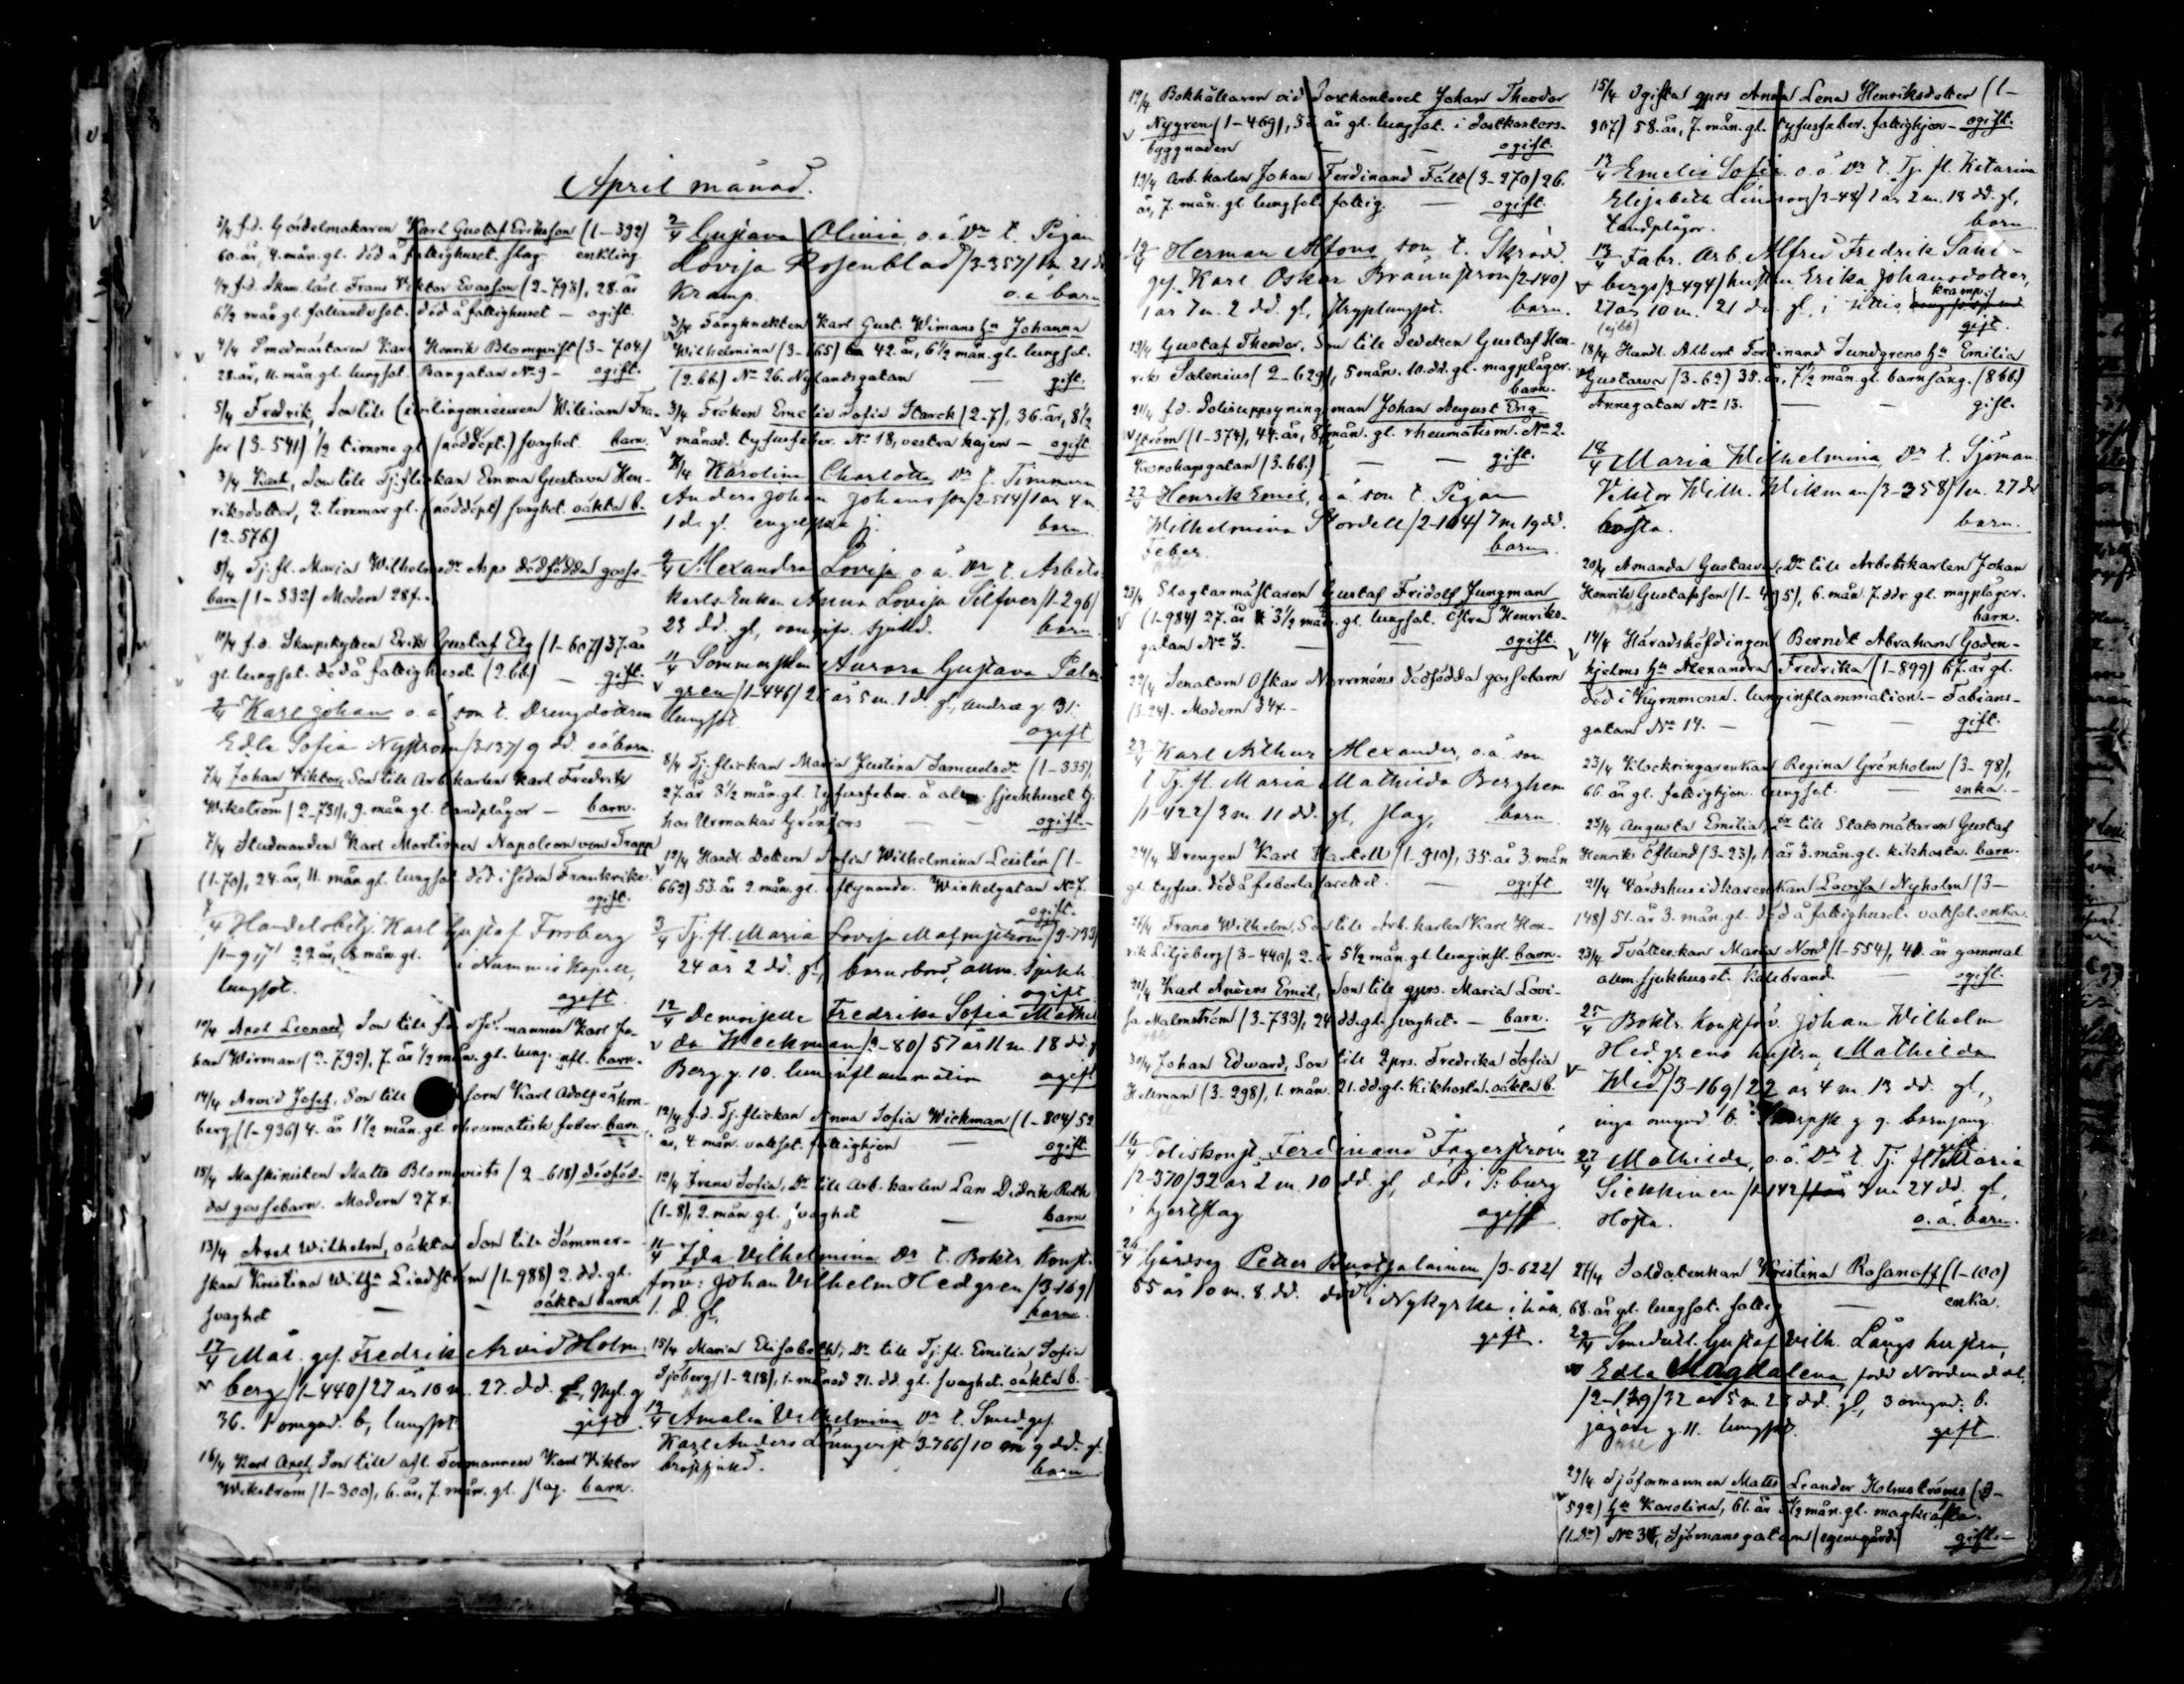 April månad.
3/4 f.d. Gördelmakaren Karl Gustaf Erikson (1-392)
60.år, 4.mån.gl. död å fattighuset. slag enkling
6½ mån gl. fallandesot. död å fattighuset - ogift.
4/4 Smedmästaren Karl Henrik Blomqvist (3-704)
28.år, 11.mån.gl. lungsot. Bangatan No 9 - ogift.
5/4 Fredrik, Son till Civilingenieuren William Fra-
ser (3-541) ½ timme gl (nöddöpt.) svaghet. barn.
3/4 Karl, Son till Tj.flickan Emma Gustava Hen-
riksdotter, 2. timmar gl. (nöddöpt) svaghet. oäkta b.
(2-576)
8/4 Tj. fl. Maria Wilhelmsdr Asps dödfödda gosse-
barn (1-332) Modern 28
10/4 f.d. Skarpskytten Erik Gustaf Elg (1-607) 37.år
gl. lungsot. död å fattighuset (2.bb.) - gift.
2/4 Karl Johan o.ä. son t. Drengdottern
Edla Sofia Nyström /3-137/ 9 dd. oä barn.
7/4 Johan Viktor, Son till Arb.karlen Karl Fredrik
Wikström (2-731), 9. mån.gl. tandplågor - barn.
7/4 Studeranden Karl Mortimer Napoleon von Trapp
(1-70), 24.år, 11. mån gl. lungsot. död i södra Frankrike.
ogift.
Handelsbetj. Karl Gustaf Forsberg
22 år, 8 mån. gl. i Nummis Kapell,
lungsot.
ogift.
10/4 Axel Leonard, Son till f.d. mannen Karl Jo-
han Wirman (2-792), 7.år ½ mån. gl. lung.infl. barn.
14/4 Arvid Josef, Son till Karl Adolf
berg (1-936) 4. år 1½ mån.gl. rheumatisk feber. barn
15/4 Maskinisten Matts Blomqvists (2-618) dödföd-
da gossebarn. Modern 27
13/4 Axel Wilhelm, oäkta Son till Sömmer-
skan Kristina Wilhna Lindström (1-988) 2. dd. gl.
svaghet - - oäkta barn
17/4 Mål. ges. Fredrik Arvid Holm-
berg /1-440/ 27 år 10 m. 27. dd. gl, Nyl. g
36. 1 omgud. b, lungsot gift.
16/4 Karl Axel, Son till afl. Karl Viktor
Wikström (1-300), 6.år, 7.mån. gl. slag. barn.
2/4 Gustava Olivia, o.ä. Dr t. Pigan
Lovisa Rosenblad /3-357/ 1m, 21 d
Kramp. o.ä barn
3/4 Fångknekten Karl Gust. Wimans hu Johanna
Wilhelmina (3-165) 42.år, 6½ mån.gl. lungsot.
(2.bb.) No 26. Nylandsgatan - gift.
3/4 Fröken Emelie Sofia Starck (2-7), 36.år, 8½
månad. tyfusfeber. No 18, vestra kajen - ogift
Karolina Charlotta Dr t. Timmerm
Anders Johan Johansson /2-514/ 1 år 4 m
1 d. gl. engelska sj. barn.
9/4 Alexandra Lovisa o.ä. Dr t. Arbets-
karls Enkan Anna Lovisa Silfver /1-296/
23 dd. gl, sjukd. barn.
11/4 Sömmerskan Aurora Gustava Palm-
gren /1-446/ 26 år 5 m. 1 d. gl, andra g. 31.
lungsot. ogift
8/4 Tj.flickan Maria Justina Samuelsdr (1-335),
27.år 3½ mån.gl. tyfusfeber å alm. sjukhuset tj.
hos Urmakar Grönfors - - ogift.
12/4 Handl. dottern Sofia Wilhelmina Leistén (1-
662) 53.år 2.mån.gl. aftynande. Winkelgatan No 7.
ogift.
3/4 Tj. fl. Maria Lovisa Malmström /3-733/
24 år 2 dd. gl, barnsbörd, allm. sjukh.
ogift
12/4 Demoiselle Fredrika Sofia Mathil-
da Weckman /2-80/ 57 år 11 m. 18 dd.
Berg g. 10. lunginflammation ogift
12/4 f.d. Tj.flickan Anna Sofia Wickman (1-804) 52
år, 4 mån. vattsot. fattighjon - ogift.
12/4 Irene Sofia, Dr till Arb.karlen Lars Didrik Roth
(1-8), 2.mån.gl. svaghet - barn
11/4 Ida Vilhelmina Dr t. Boktr. Konst-
förv: Johan Vilhelm Hedgren /3-169/
1. d. gl, barn.
15/4 Maria Elisabeth, Dr till Tj.fl. Emilia Sofia
Sjöberg (1-218), 1.månad 21. dd. gl. svaghet. oäkta b.
13/4 Amalia Vilhelmina Dr t. Smedges.
Karl Anders Ljungqvist /3-766/ 10 m 9 dd. gl.
bröstsjukd. barn
19/4 Bokhållaren vid Postkontoret Johan Theodor
Nygren (1-469), 38 år gl. lungsot. i Postkontors-
byggnaden - - ogift.
19/4 Arb.karlen Johan Ferdinand Fält (3-270) 26.
år, 7. mån. gl lungsot. fattig. - ogift.
19/4 Herman Alfons, son t. Skrädd.
ges. Karl Oskar Brännström /2-140/
1 år 7 m. 2 dd. gl, stryplungsot. barn.
19/4 Gustaf Theodor, Son till Gustaf Hen-
rik Salenius (2-629), 5 mån. 10.dd.gl. magplågor.
barn.
21/4 f.d. Polisuppsyningsman Johan August Eng-
ström (1-374), 44.år, 8 mån. gl. rheumatism. No 2.
Kronohagsgatan (3.bb.) - - gift.
22/4 Henrik Emil, o.ä. son t. Pigan
Wilhelmina Stordell /2-104/ 7 m 19 dd.
Feber. barn.
23/4 Slagtarmästaren Gustaf Fridolf Jungman
(1-984) 27.år 3½ mån. gl. lungsot. Östra Henriks-
gatan No 3. - - ogift.
29/4 Senatorn Oskar Norrméns dödfödda gossebarn
(3-24). Modern 34
23/4 Karl Arthur Alexander, o.ä. son
t Tj. fl. Maria Mathilda Berghem
/1-422/ 3 m 11 dd. gl, slag, barn
24/4 Drengen Karl Hartell (1-910), 35.år 3.mån
gl. tyfus. död å feberlasarettet. - ogift
26/4 Frans Wilhelm, Son till Arb.karlen Karl Hen-
rik Liljeberg (3-440), 2. år 5½ mån. gl. lunginfl. barn.
21/4 Karl Anders Emil, Son till qprs. Maria Lovi-
sa Malmström (3-733), 24 dd.gl. svaghet. - barn.
30/4 Johan Edward, Son till qprs. Fredrika Sofia
(3-298), 1. mån. 21. dd.gl. Kikhosta. oäkta b.
16/4 Poliskonst. Ferdinand Fagerström
/2-370/ 32 år 2 m. 10 dd. gl, död i P:burg
i hjertslag ogift
26/4 Gårdseg Petter /3-622/
65 år 10 m. 8. dd. död i Nykyrka i hån.
gift.
15/4 Ogifta qprs Anna Lena Henriksdotter (1-
307) 58.år, 7.mån.gl. tyfusfeber. fattighjon - ogift.
13/4 Emelie Sofie. o.ä Dr t. Tj. fl. Katarina
Elisabeth Lindroos /3-48/ 1 år 2 m. 18 dd. gl,
tandplågor. barn
13/4 Fabr. Arb. Alfred Fredrik Sahl-
bergs /3-494/ hustru Erika Johansdotter,
27 år 10 m. 21 dd. gl, i Kittis, kramp.
gift.
18/4 Handl. Albert Ferdinand Sundgrens hu Emilia
Gustava (3-62) 35.år, 7½ mån.gl. barnsäng. (8 bb.)
Annegatan No 13. - - gift.
18/4 Maria Wilhelmina Dr t. Sjöman
Viktor Wilh. Wikman /3-358/ 1 m. 27 dd
hosta. barn.
20/4 Amanda Gustava, Dr till Arbetskarlen Johan
Henrik Gustafsson (1-495), 6. mån. 7.ddr gl. magplågor.
barn.
14/4 Häradshöfdingen Berndt Abraham Goden-
hjelms hu Alexandra Fredrika (1-899) 67.år gl.
död i Kymmene. lunginflammation. - Fabians-
gatan No 14. - - gift.
23/4 Klockringarenkan Regina Grönholm (3-98),
66. år gl. fattighjon. lungsot. - enka.
25/4 Augusta Emilia, Dr till Stadsmätaren Gustaf
Henrik Öflund (3-23), 1. år 3.mån.gl. kikhosta. barn.
21/4 Värdshusidkarenkan Lovisa Nyholm (3-
148) 51.år 3. mån.gl. död å fattighuset. vattsot. enka.
23/4 Tvätterskan Maria Nord (1-554), 40. år gammal
allm sjukhuset. Kallbrand. - ogift.
25/4 Boktr. Konstförv. Johan Wilhelm
Hedgrens hustru Mathilda
Wid /3-169/ 22 år 4 m. 13 dd. gl,
inga omynd. b. Skarpsk g 9. barnsäng
gift
27/4 Mathilda, o.ä. Dr t. Tj. fl. Maria
Siekkinen /1-142/ 3 m 24 dd. gl,
Hosta. o.ä. barn.
27/4 Soldatenkan Kristina Rosanoff (1-100)
68.år gl. lungsot. fattig - enka.
29/4 Smedsäll. Gustaf Vilh. Långs hustru,
Edla Magdalena, född Nordendal,
/2-139/ 32 år 5 m. 23 dd. gl, 3 omynd. b.
Jägare g. 11. lungsot. gift.
29/4 Sjöformannen Matts Leander Holmströms (3-
592) hu Karolina, 61.år mån.gl. magkräfta.
No 36, Sjömansgatan (egen gård) gift.-